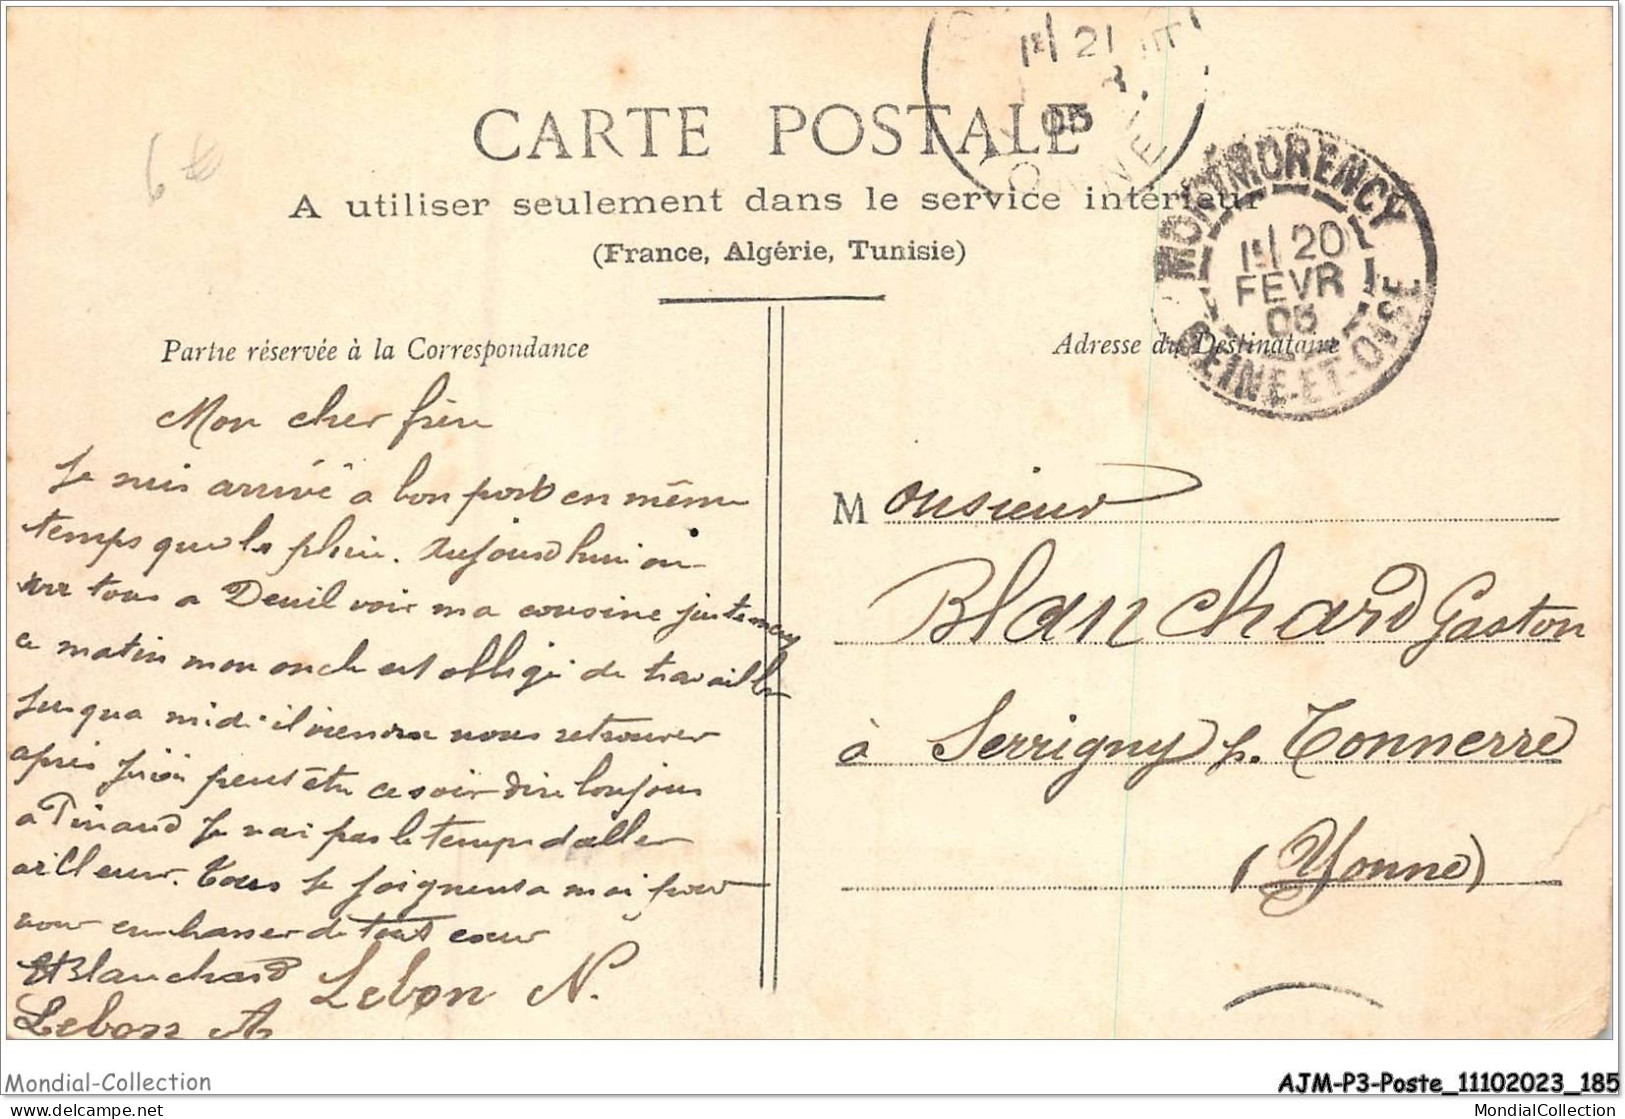 21
05
CARTE POSTALE
A utiliser seulement dans le service intérieur
(France, Algérie, Tunisie)
MONTMORENCY
20
FEVR
05
SEINE-ET-OISE
6€
Partie réservée à la Correspondance
Adresse du Destinataire
Mon cher frère
Je suis arrivé a bon port en même
temps que la pluie. Aujourdhui on
va tous a Deuil voir ma cousine justement
ce matin mon oncle est obligé de travailler
jusqua midi il viendra nous retrouver
apres j'irai peut être ce soir dire bonjour
a Pinaud Je nai pas le temps daller
ailleurs. Tous se joignent a moi pour
vous embrasser de tout cœur
Blanchard Lebon N.
Lebon A
Monsieur
Blanchard Gaston
à Serrigny p. Tonnerre
(Yonne)
Mondial-Collection
AJM-P3-Poste_11102023_185
https://www.delcampe.net
MondialCollection